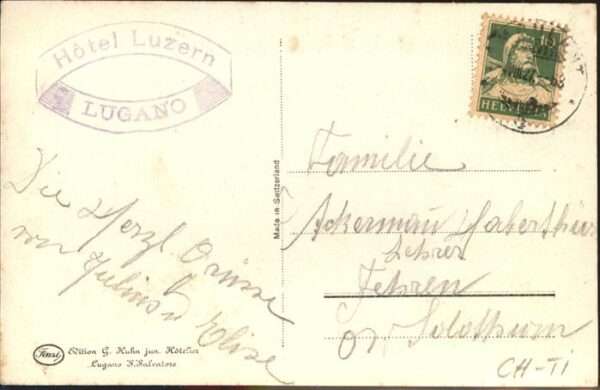 Hôtel Luzern
LUGANO
HELVETIA
Made in Switzerland
Die Herzl. Grüsse
von Julius u Elise
Familie
Ackermann Haberthür
Lehrer
Fehren
Solothurn
CH-TI
Edition G. Kuhn jun. Hôtelier
Lugano S. Salvatore